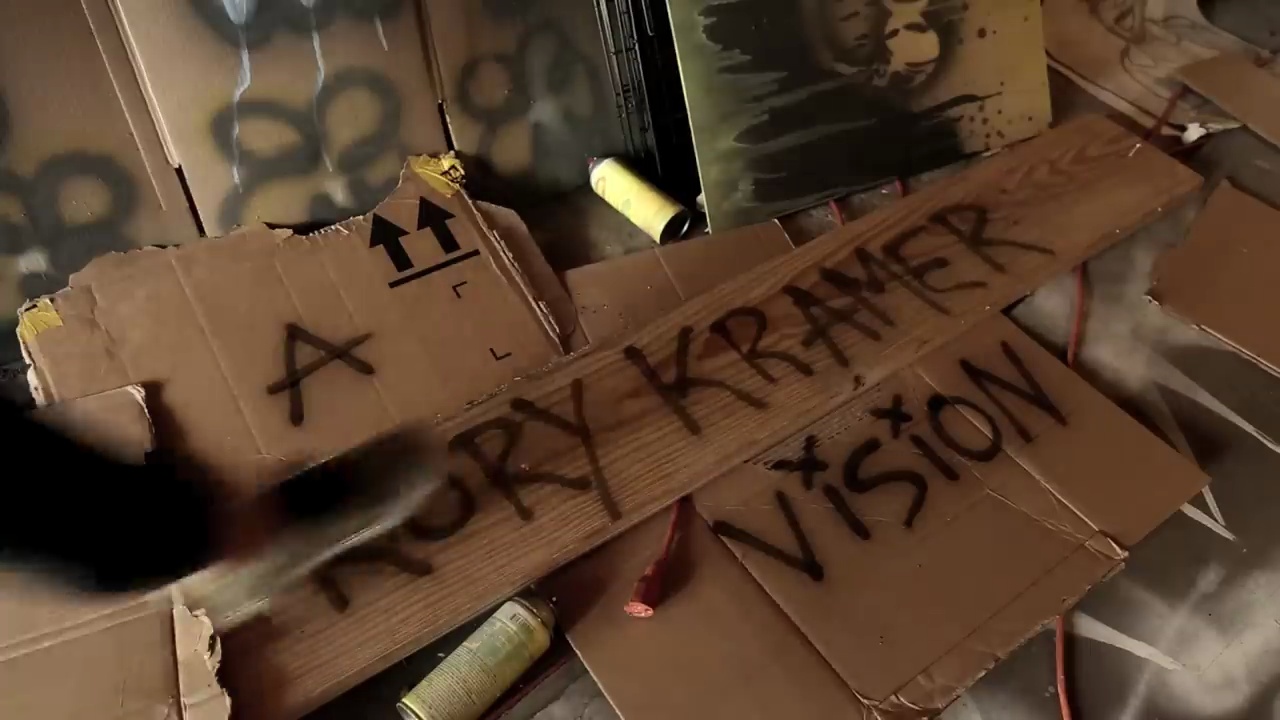 A
RORY KRAMER
ViSiON